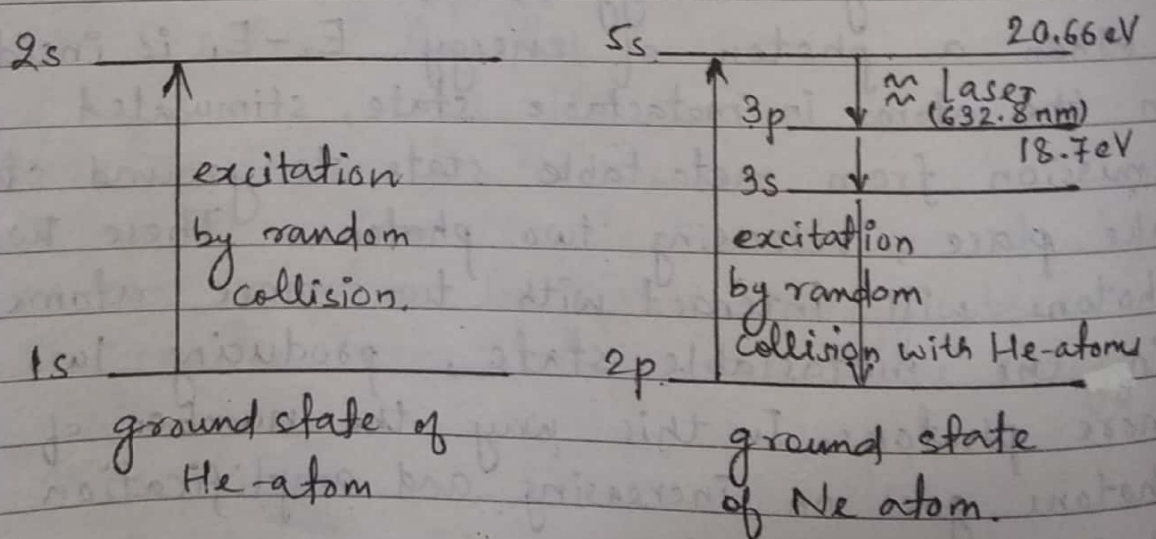 2s
excitation
by random
collision.
1s
ground state of
He-atom
5s 20.66 eV
≈ laser
3p (632.8 nm)
18.7eV
3s
excitation
by random
Collision with He-atoms
2p
ground state
of Ne atom.